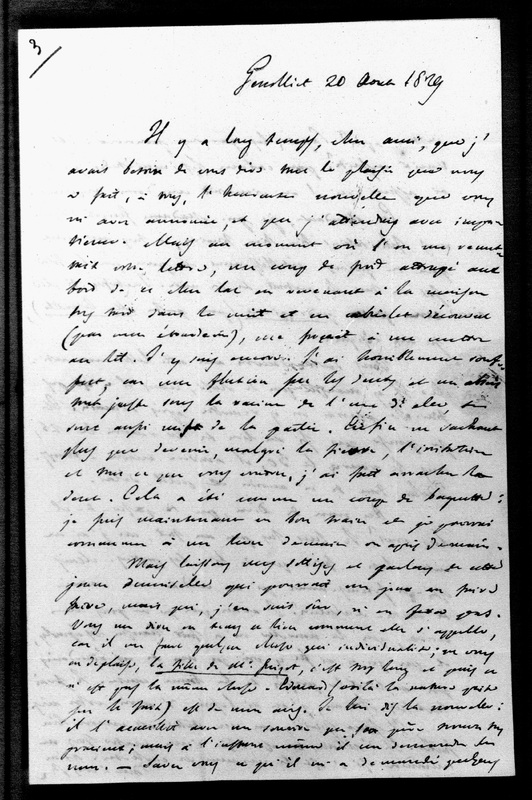 3
20 Aout 1829
Il y a long temps, cher ami, que j'
avais besoin de vous dire tout le plaisir que nous
a fait, à tous, l'heureuse nouvelle que vous
m'avez annoncée, et que j'attendais avec impa-
tience. Mais au moment où l'on me remet-
tait votre lettre, un coup de froid attrapé aux
bords de ce cher lac en revenant à la maison
dans la nuit et en cabriolet découvert
(par mon étourderie), me à me mettre
au lit. J'y suis encore. J'ai horriblement souf-
fert, car une fluxion sur les dents et un
tout juste sous la racine de l'une d'elles se
sont aussi mis de la partie. Enfin ne sachant
plus que devenir, malgré la fièvre, l'irritation
et tout ce que vous voudrez, j'ai fait arracher la
dent. Cela a été comme un coup de baguette :
je suis maintenant en bon train et je pourrai
commencer à me lever demain ou après demain.
Mais laissons mes sottises et parlons de cette
jeune demoiselle qui pourrait un jour en
faire, mais qui, j'en suis sûr, n'en fera pas.
Vous me direz en temps et lieu comment elle s'appelle,
car il me faut quelque chose qui individualise; ne vous
en déplaise, la fille de Mr. , c'est trop long et puis ce
n'est pas la même chose. Edouard (voilà la nature prise
sur le fait) est de mon avis. Je lui dis la nouvelle :
il l'accueillit avec un sourire que son père trouva très
gracieux ; mais à l'instant même il me demanda le
nom. — Savez vous ce qu'il m'a demandé quelques